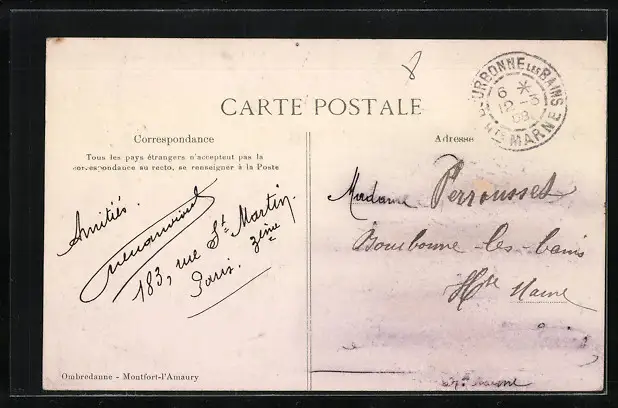 CARTE POSTALE
Correspondance
Tous les pays étrangers n'acceptent pas la
correspondance au recto, se renseigner à la Poste
Amitiés.
183, rue St Martin.
Paris. 3ème
Ombredanne - Montfort-l'Amaury
BOURBONNE LES BAINS
6 * 
12 - 5
08
Hte MARNE
Adresse
Madame Perrousset
Bourbonne-les-bains
Hte Marne